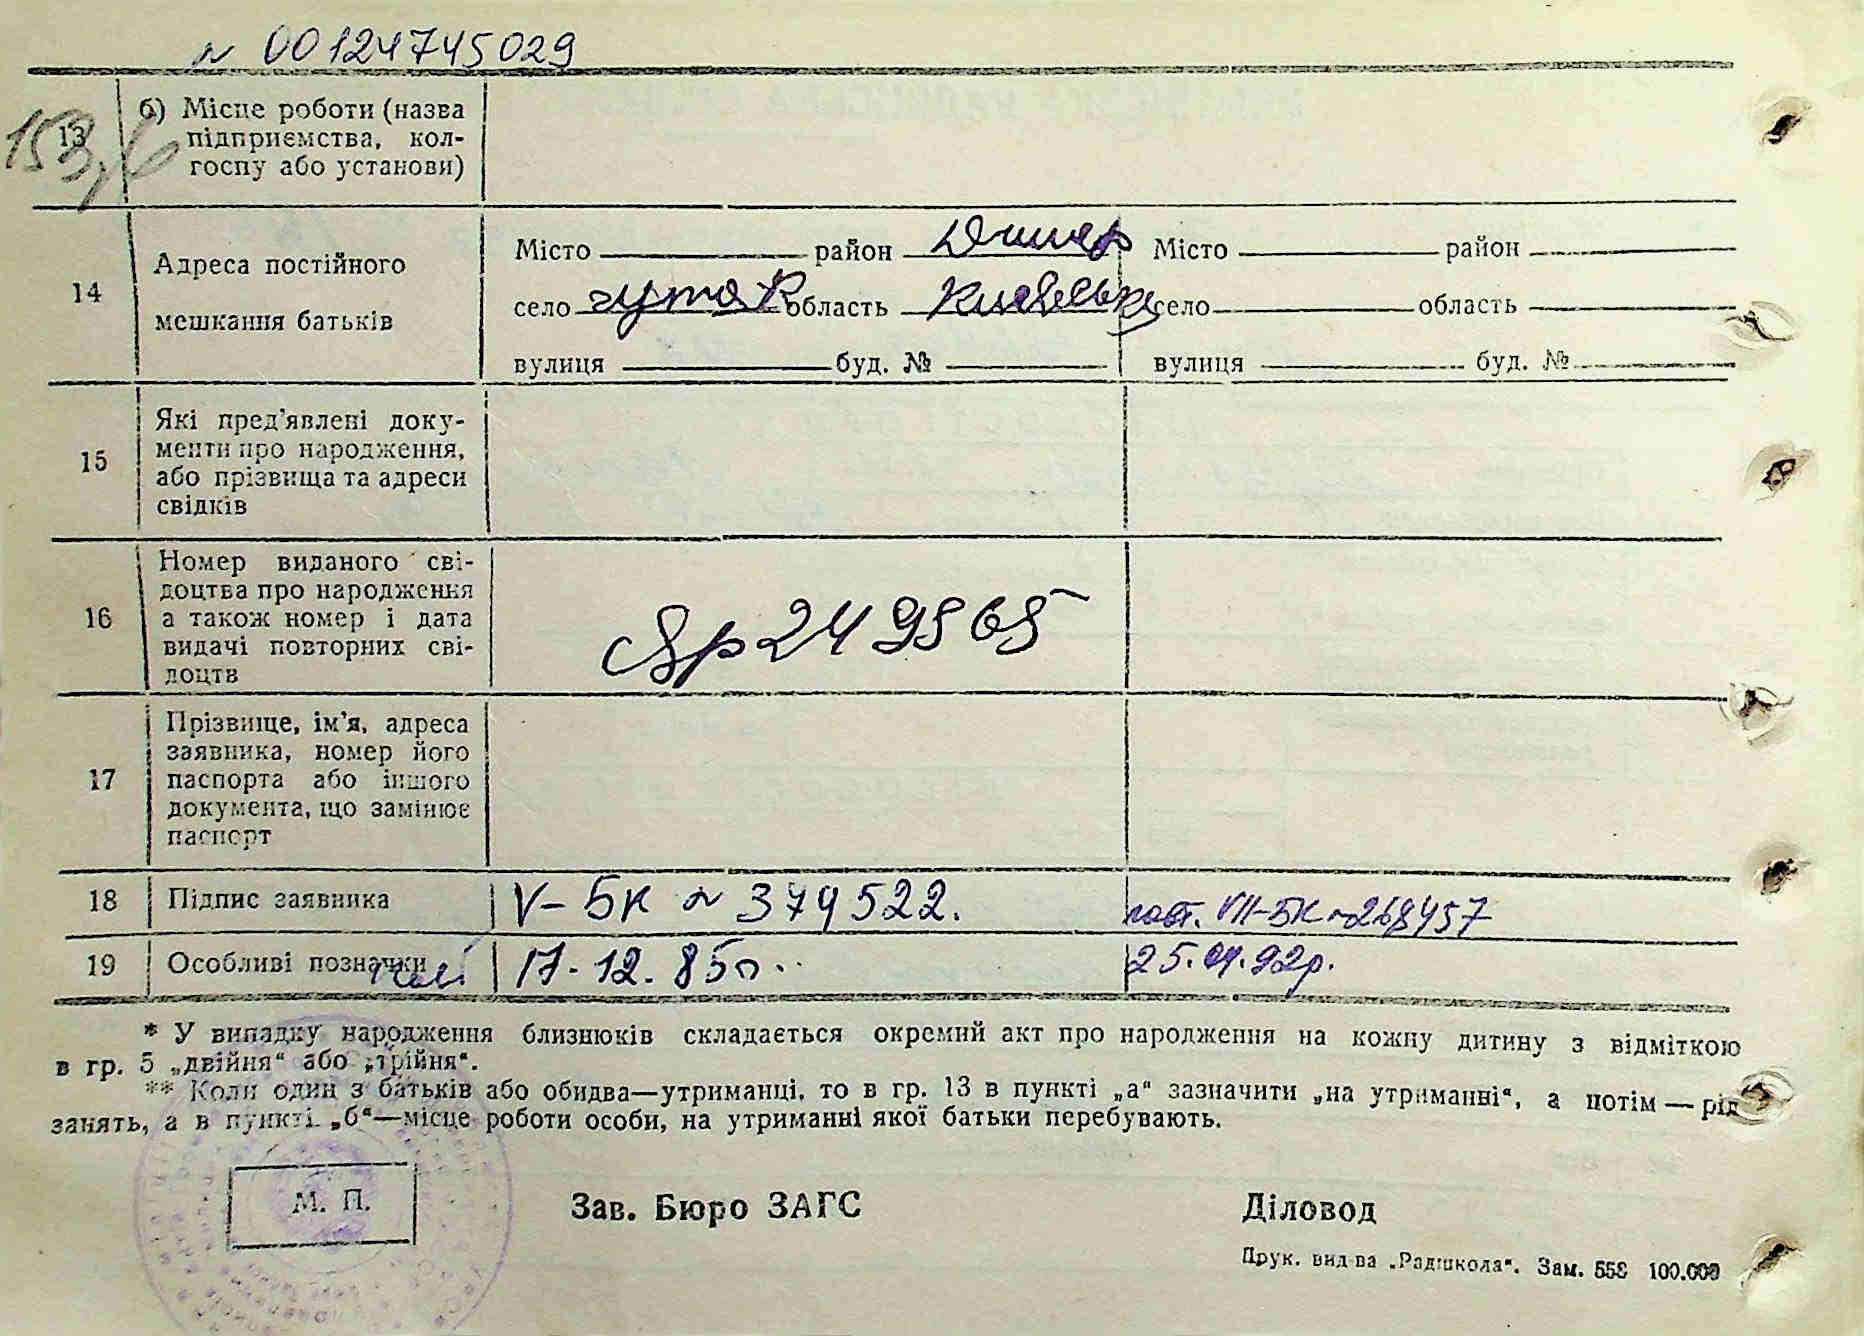 № 00124745029
153,6
13 б) Місце роботи (назва
підприємства, кол-
госпу або установи)
14 Адреса постійного
мешкання батьків
Місто район Димер Місто район
село область Київська село область
вулиця буд. № вулиця буд. №
15 Які пред'явлені доку-
менти про народження,
або прізвища та адреси
свідків
16 Номер виданого сві-
доцтва про народження
а також номер і дата
видачі повторних сві-
доцтв
249565
17 Прізвище, ім'я, адреса
заявника, номер його
паспорта або іншого
документа, що замінює
паспорт
18 Підпис заявника V-БК № 379522. повт. VII-БК №268457
19 Особливі позначки 17.12.85р. 25.01.92р.
* У випадку народження близнюків складається окремий акт про народження на кожну дитину з відміткою
в гр. 5 „двійня“ або „трійня“.
** Коли один з батьків або обидва—утриманці, то в гр. 13 в пункті „а“ зазначити „на утриманні“, а потім — рід
занять, а в пункті „б“—місце роботи особи, на утриманні якої батьки перебувають.
М. П. Зав. Бюро ЗАГС Діловод
Друк. вид-ва „Радшкола“. Зам. 558 100.000